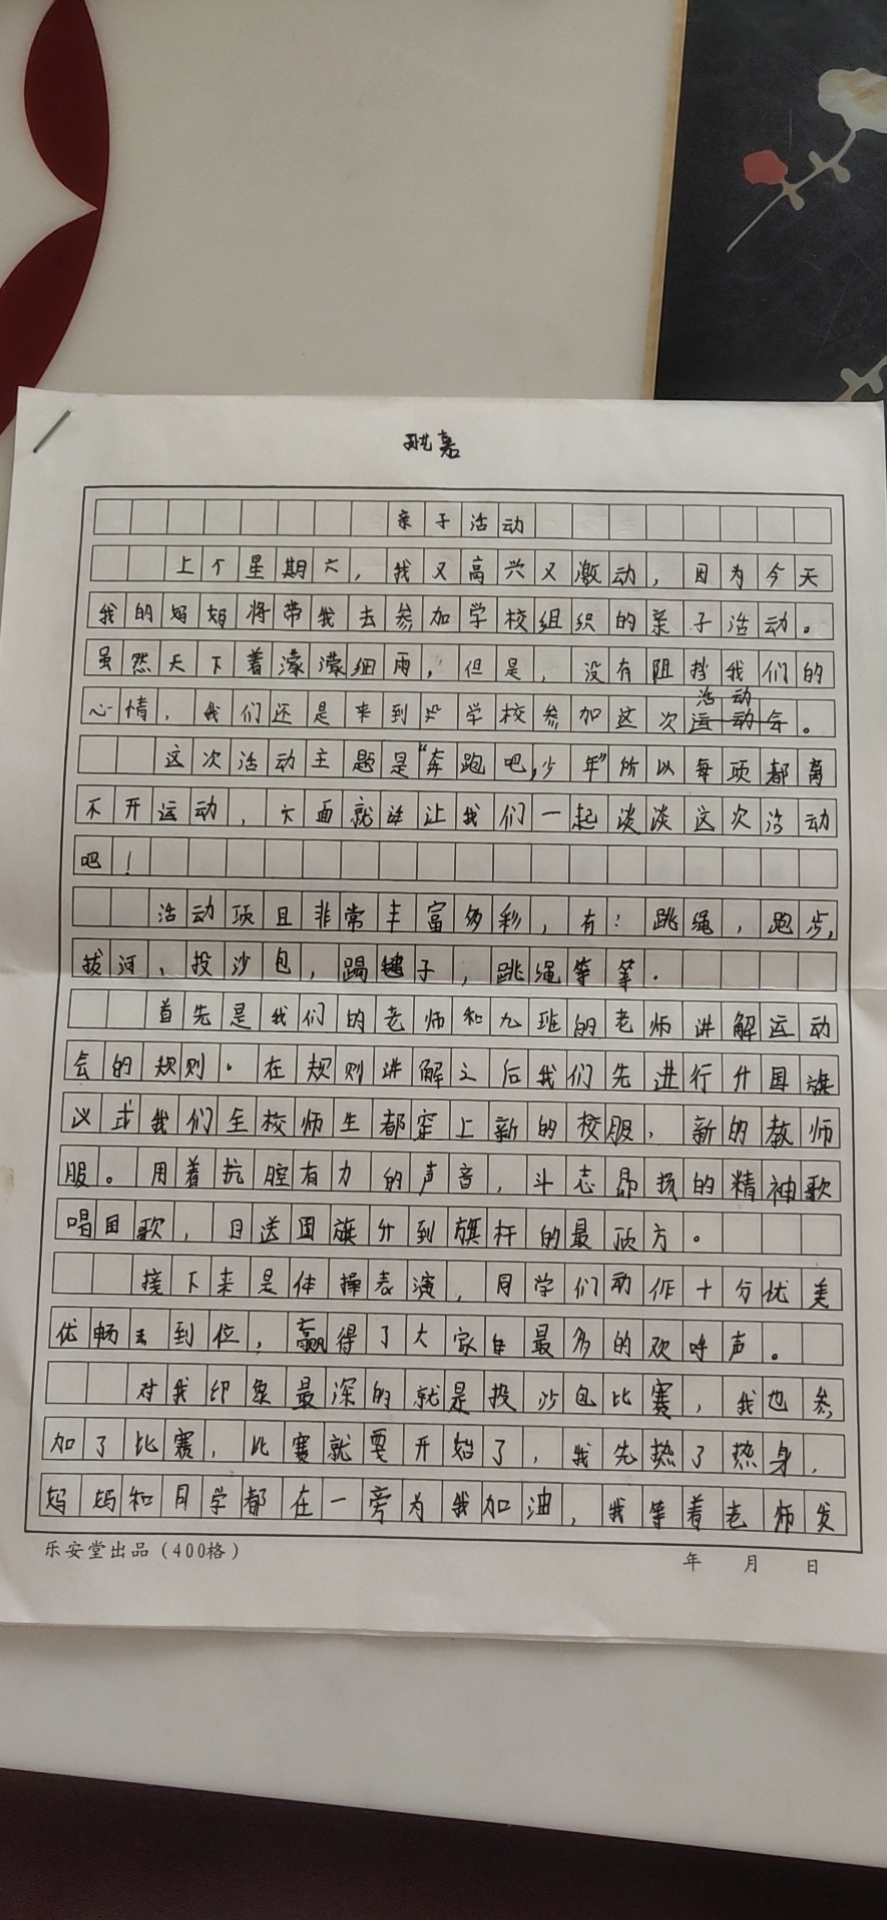 亲子活动
上个星期六，我又高兴又激动，因为今天
我的妈妈将带我去参加学校组织的亲子活动。
虽然天下着濛濛细雨，但是，没有阻挡我们的
活动
心情，我们还是来到学校参加这次运动会。
这次活动主题是“奔跑吧，少年”所以每项都离
不开运动，下面就让我们一起谈谈这次活动
吧！
活动项目非常丰富多彩，有：跳绳，跑步，
拔河、投沙包，踢毽子，跳绳等等.
首先是我们的老师和九班的老师讲解运动
会的规则.在规则讲解之后我们先进行升国旗
议式我们全校师生都穿上新的校服，新的教师
服。用着抗腔有力的声音，斗志昂扬的精神歌
唱国歌，目送国旗升到旗杆的最顶方。
接下来是体操表演，同学们动作十分优美
优畅到位，赢得了大家最多的欢呼声。
对我印象最深的就是投沙包比赛，我也参
加了比赛，比赛就要开始了，我先热了热身，
妈妈和同学都在一旁为我加油，我等着老师发
乐安堂出品（400格）
年 月 日